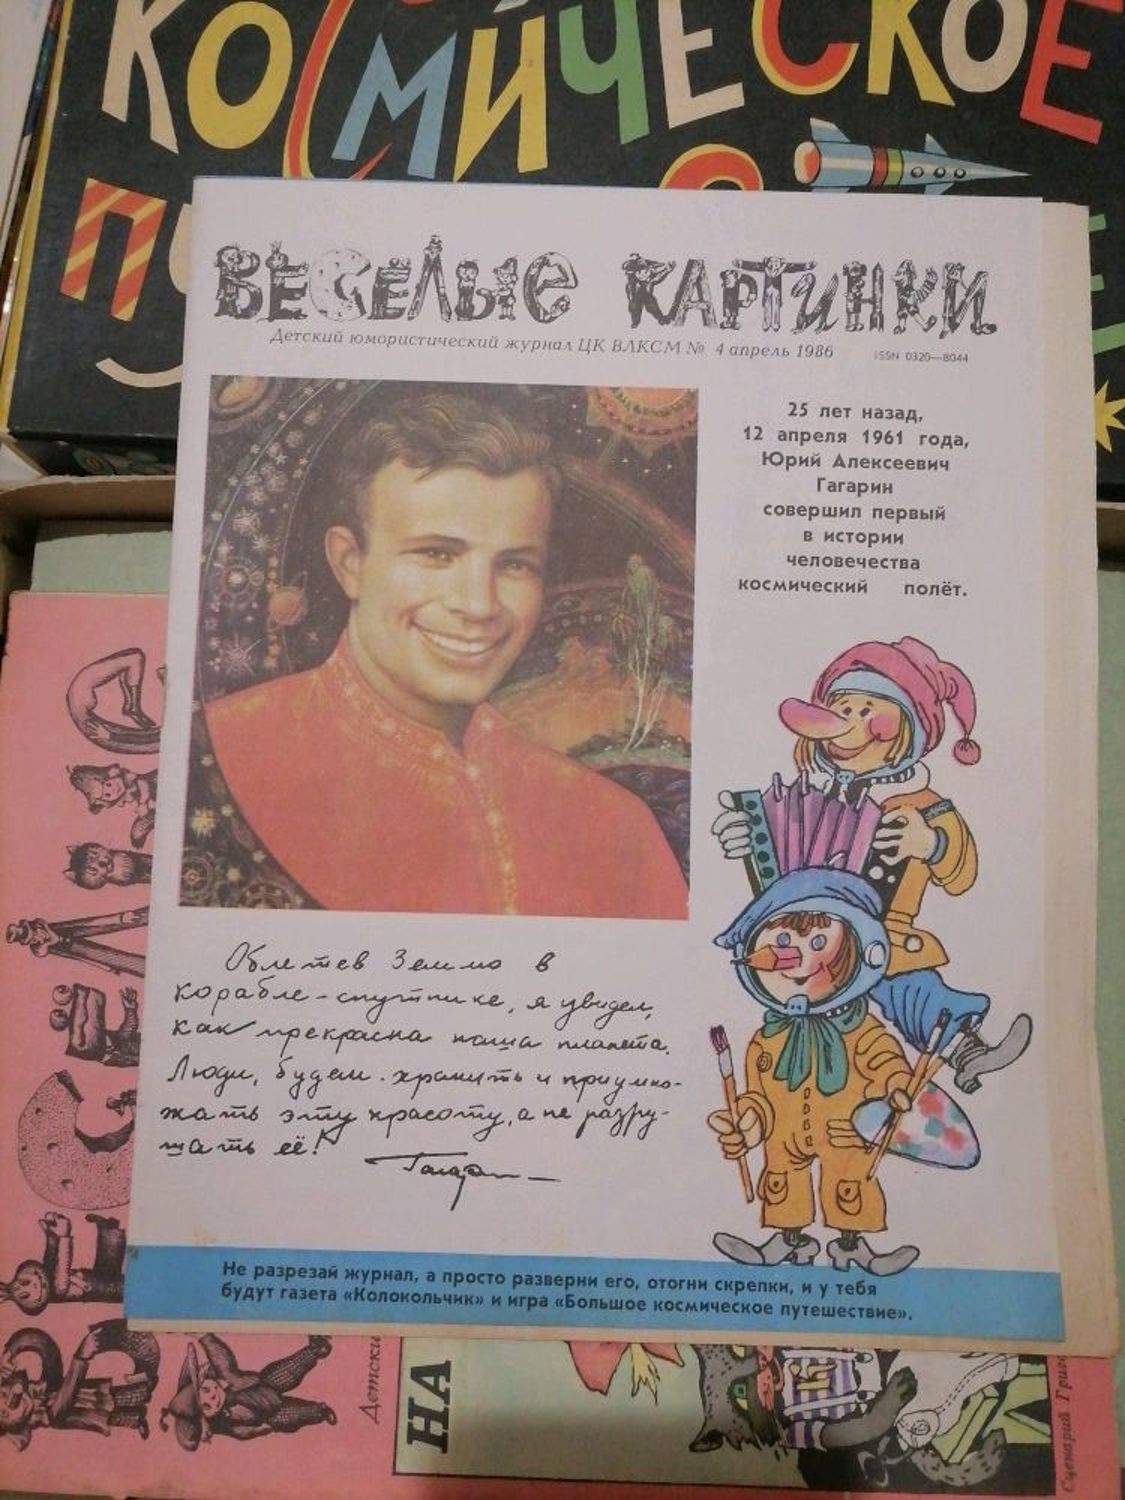 КОСМИЧЕСКОЕ
ВЕСЁЛЫЕ КАРТИНКИ
Детский юмористический журнал ЦК ВЛКСМ № 4 апрель 1986 ISSN 0320—8044
25 лет назад,
12 апреля 1961 года,
Юрий Алексеевич
Гагарин
совершил первый
в истории
человечества
космический полёт.
Облетев Землю в
корабле-спутнике, я увидел,
как прекрасна наша планета.
Люди, будем хранить и приумно-
жать эту красоту, а не разру-
шать её!
Гагарин
Не разрезай журнал, а просто разверни его, отогни скрепки, и у тебя
будут газета «Колокольчик» и игра «Большое космическое путешествие».
НА